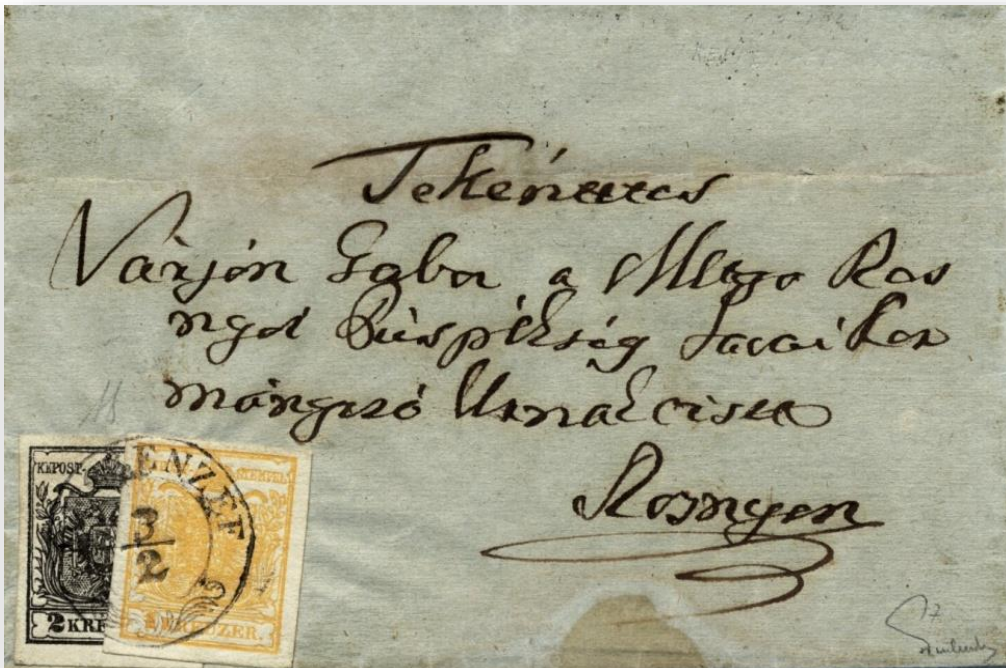 Tekéntetes
Várjón Gabor a Mlgo Ros
nyoi Püspökség Javai Kor
mányozó Urnak cisea
Rosnyon
KKPOST-
2 KRE
ENZEF
3/2
KREUZER.